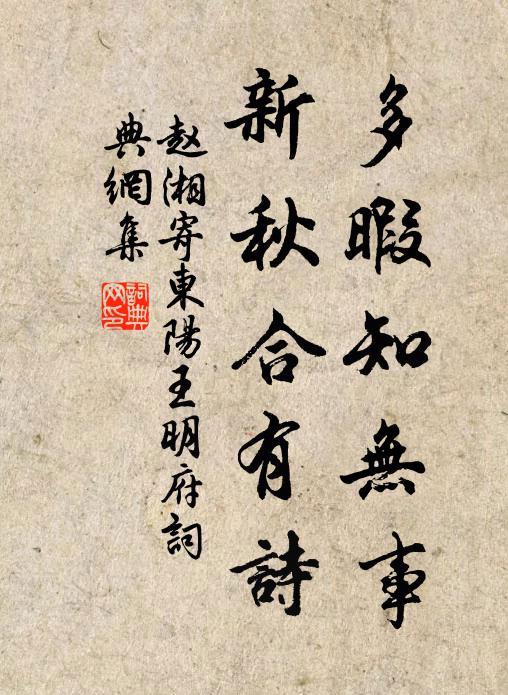 多暇知無事
新秋合有詩
赵湘寄東陽王明府詞
典網集
詞典網印